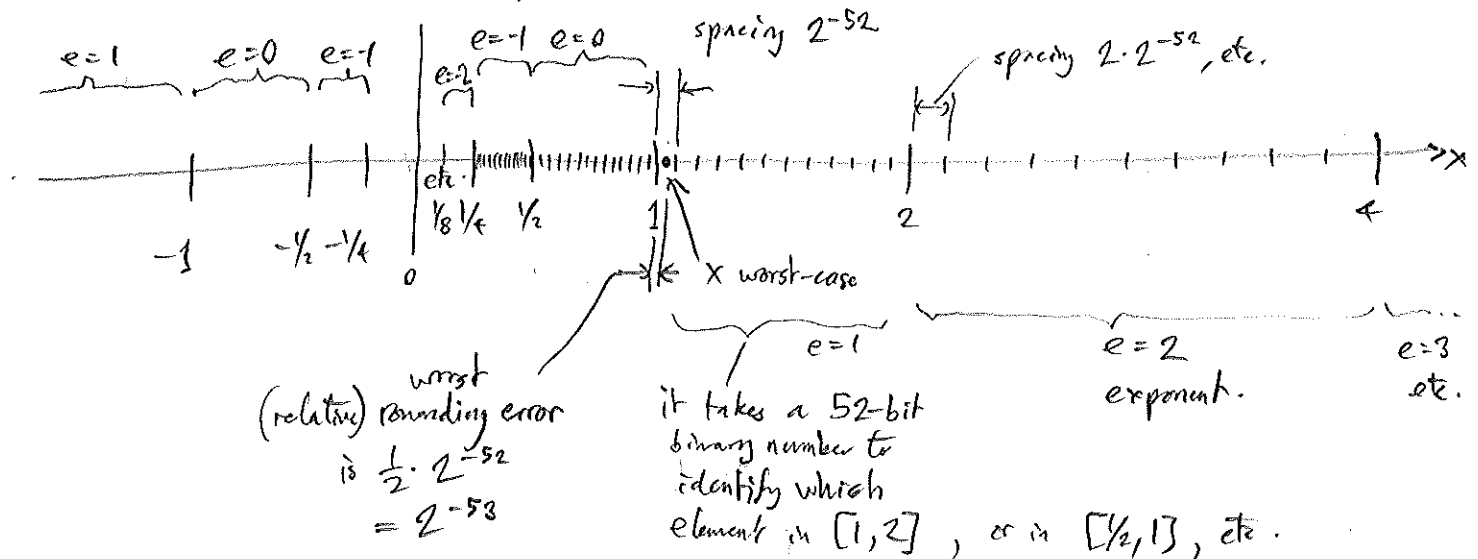 spacing 2^-52
e=1 e=0 e=-1 e=-2 e=-1 e=0
spacing 2·2^-52, etc.
etc.
x
-1 -1/2 -1/4 0 1/8 1/4 1/2 1 2 4
x worst-case
e=1 e=2 e=3
exponent. etc.
worst
(relative) rounding error
is 1/2 · 2^-52
= 2^-53
it takes a 52-bit
binary number to
identify which
element in [1,2], or in [1/2,1], etc.